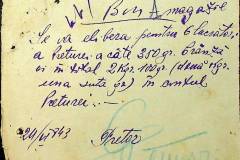 Bon / magazie
Se va elibera pentru 6 lucrători
a Preturei a câte 350 gr. brânză
și în total 2 Kgr. 100 gr. (două kgr.
una sută gr) în contul
Preturei. —
24/VI 943 Pretor